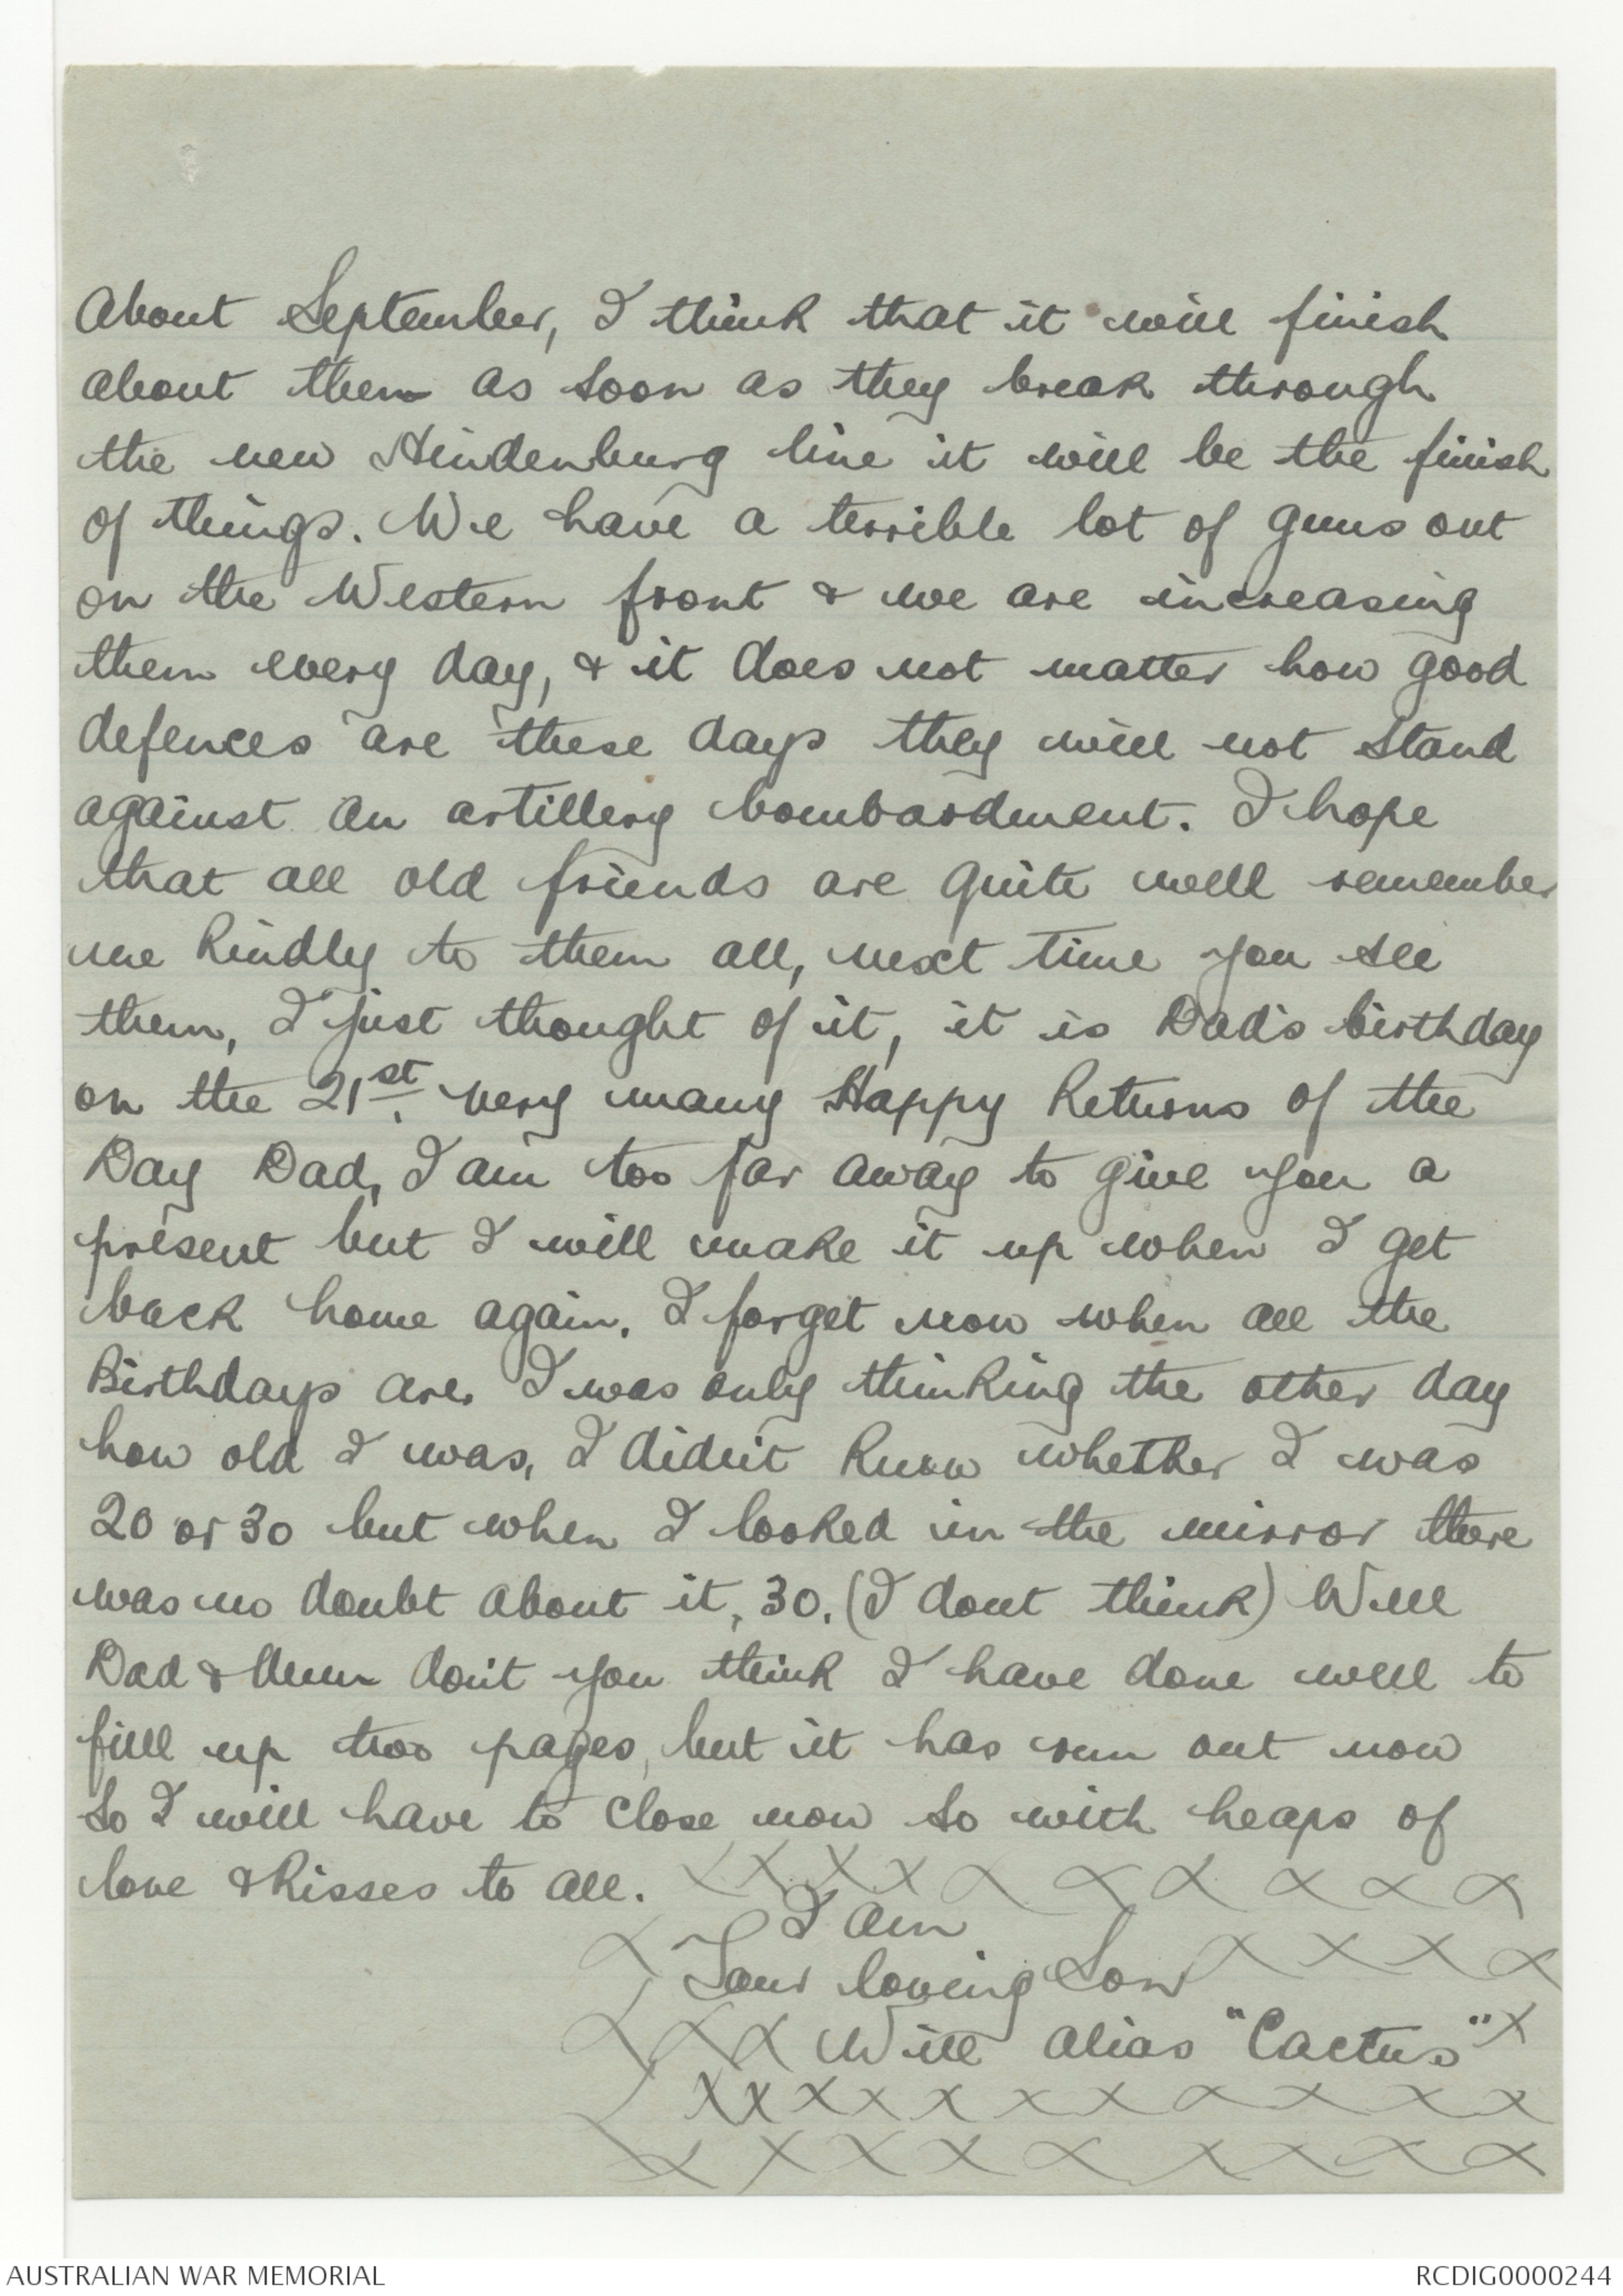 About September, I think that it will finish
about then as soon as they break through
the new Hindenburg line it will be the finish
of things. We have a terrible lot of guns out
on the Western front & we are increasing
them every day, & it does not matter how good
defences are these days they will not stand
against an artillery bombardment. I hope
that all old friends are quite well remember
me kindly to them all, next time you see
them, I just thought of it, it is Dad's birthday
on the 21st. very many Happy Returns of the
Day Dad, I am too far away to give you a
present but I will make it up when I get
back home again. I forget now when all the
Birthdays are. I was only thinking the other day
how old I was, I didn't know whether I was
20 or 30 but when I looked in the mirror there
was no doubt about it, 30. (I dont think) Well
Dad & Mum don't you think I have done well to
fill up two pages, but it has run out now
So I will have to close now so with heaps of
love & kisses to all. XXXXXXXXXX
I am
X Your loving Son XXXX
XXX Will alias "Cactus" X
XXXXXXXXXXX
XXXXXXXXX
AUSTRALIAN WAR MEMORIAL
RCDIG0000244